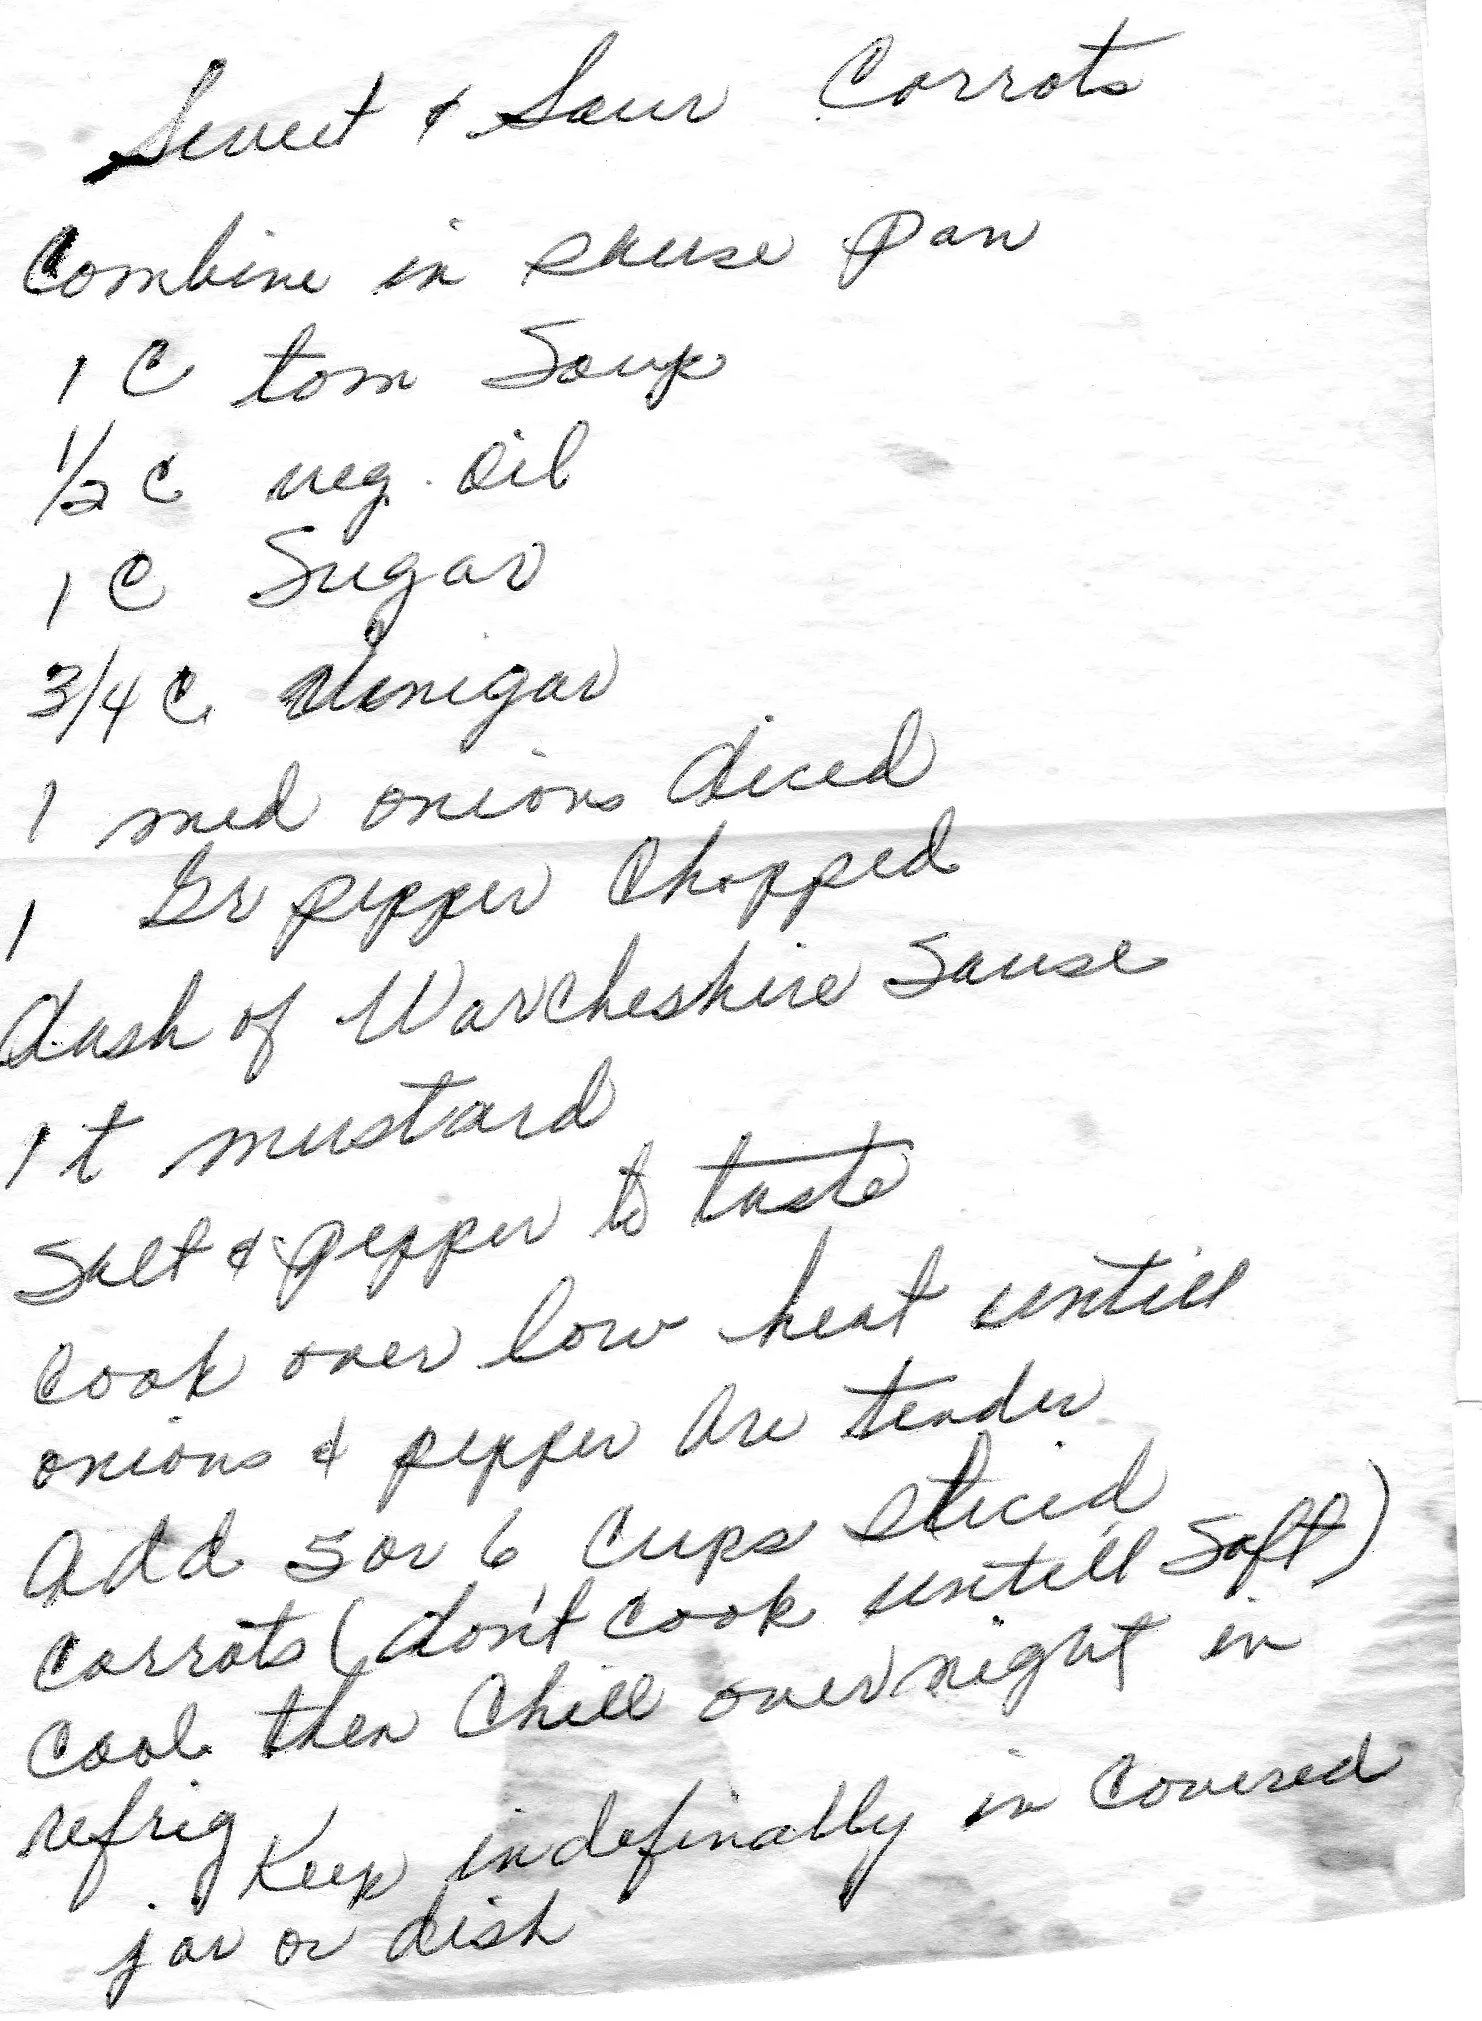 Sweet & Sour Carrots
Combine in sause pan
1 C tom Soup
1/2 C veg. oil
1 C Sugar
3/4 C. Vinigar
1 med onions diced
1 Gr pepper Chopped
dash of Warcheshire Sause
1 t mustard
Salt & pepper to taste
Cook over low heat untill
onions & pepper are tender
Add 5 or 6 cups sliced
carrots (don't cook untill soft)
Cool then Chill overnight in
refrig Keep indefinally in covered
jar or dish